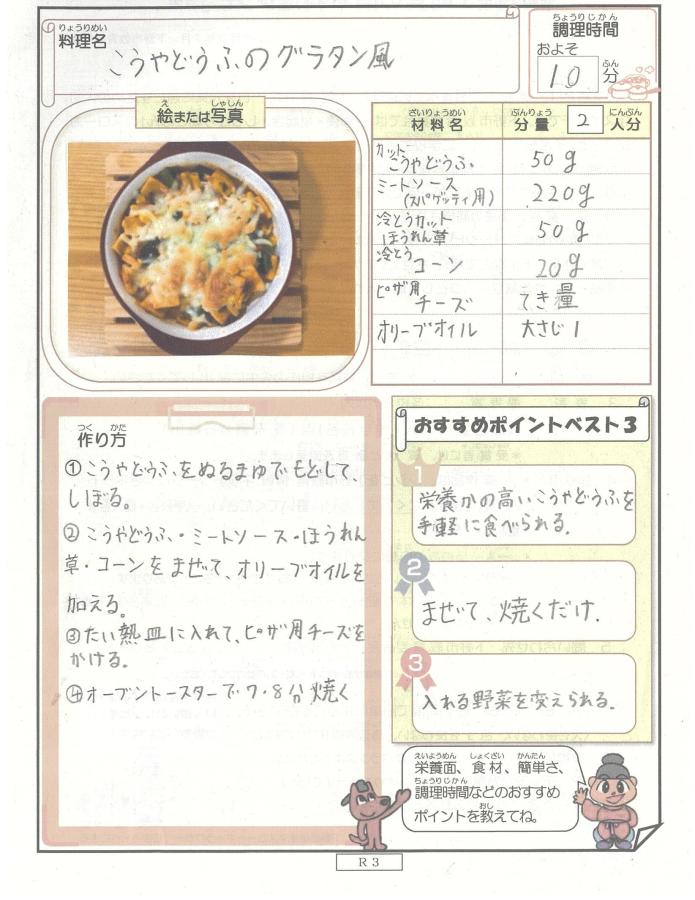 料理名
りょうりめい
こうやどうふのグラタン風
ちょうりじかん
調理時間
およそ
10分
ぷん
え しゃしん
絵または写真
ざいりょうめい ぶんりょう にんぶん
材料名 分量 2 人分
カット
こうやどうふ 50g
ミートソース
(スパゲッティ用) 220g
冷とうカット
ほうれん草 50g
冷とう
コーン 20g
ピザ用
チーズ てき量
オリーブオイル 大さじ1
つく かた
作り方
①こうやどうふをぬるまゆでもどして
しぼる。
②こうやどうふ・ミートソース・ほうれん
草・コーンをまぜて、オリーブオイルを
加える。
③たい熱皿に入れて、ピザ用チーズを
かける。
④オーブントースターで7・8分焼く
おすすめポイントベスト3
1
栄養かの高いこうやどうふを
手軽に食べられる。
2
まぜて、焼くだけ。
3
入れる野菜を変えられる。
えいようめん しょくざい かんたん
栄養面、食材、簡単さ、
ちょうりじかん
調理時間などのおすすめ
おし
ポイントを教えてね。
R3